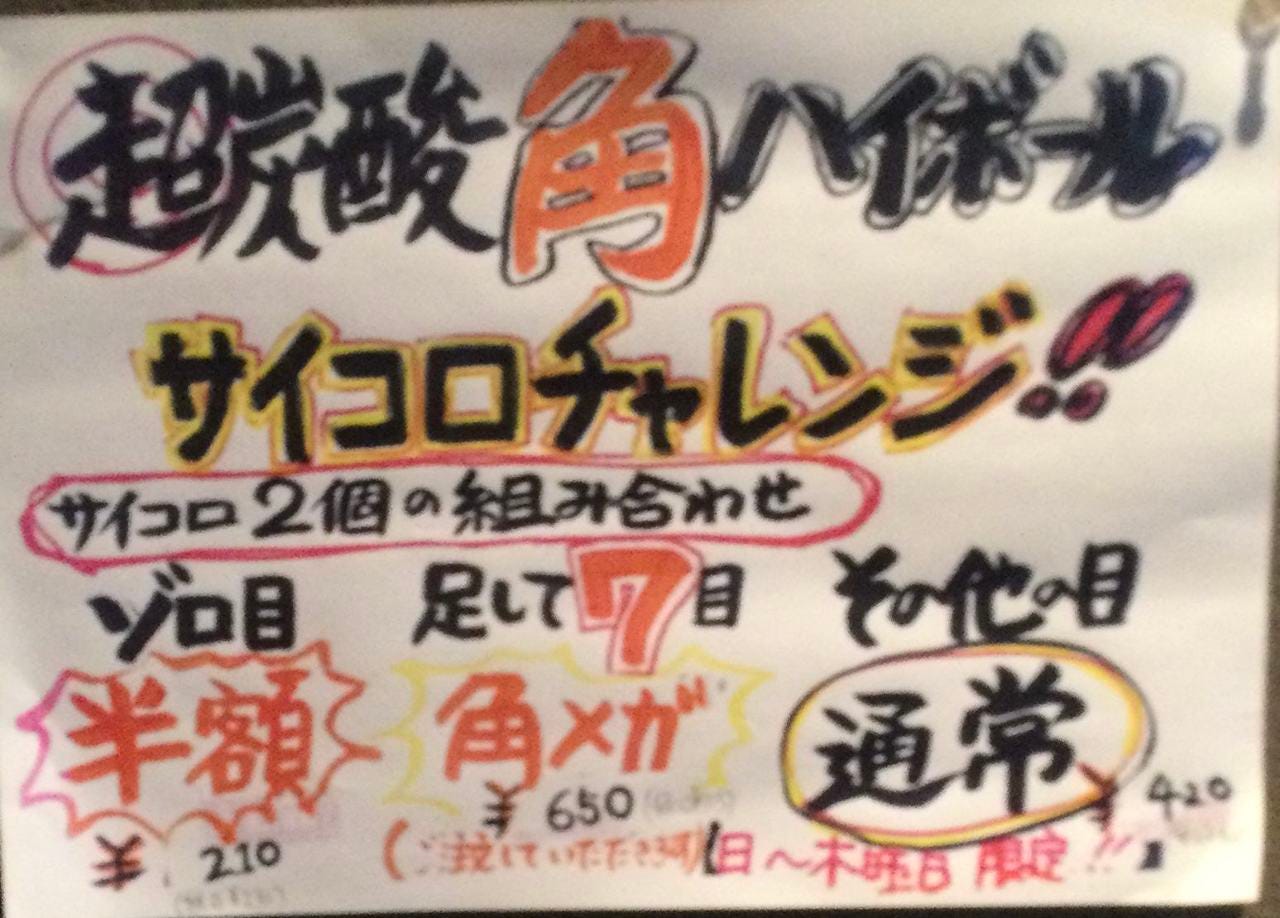 超炭酸角ハイボール
サイコロチャレンジ!!
サイコロ2個の組み合わせ
ゾロ目 足して7目 その他の目
半額 角メガ 通常
¥210 ¥650 ¥420
(ご注文していただきます) 【日～木曜日 限定!!】